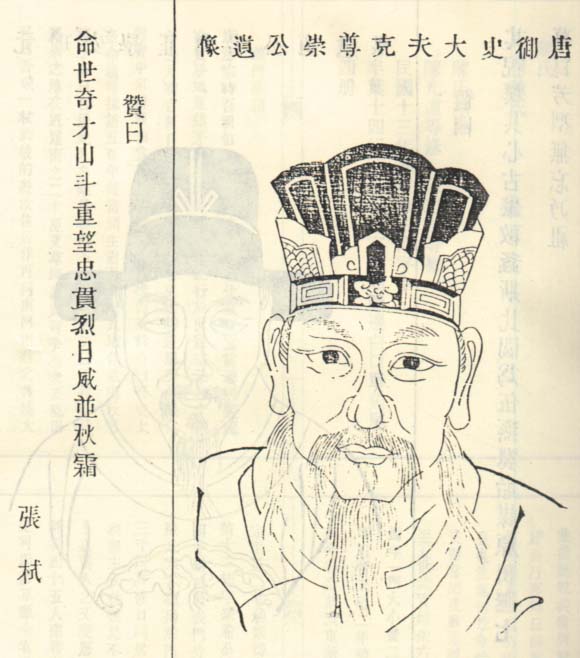 唐御史大夫克尊崇公遺像
贊曰
命世奇才山斗重望忠貫烈日威並秋霜
張栻